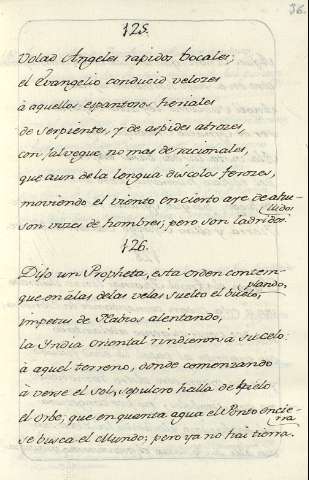 36.
125.
Volad Angeles rapidos bocales;
el Evangelio conducid velozes
à aquellos espantosos heriales
de serpientes, y de aspides atrozes,
con salvegue no mas de racionales,
que aun de la lengua discolos ferozes,
moviendo el viento en cierto aye de ahu-
llidos
son vozes de hombres; pero son ladridos.
126.
Dijo un Propheta, esta orden contem-
plando,
que en àlas delas velas suelto el buelo,
impetus de Nabios alentando,
la India oriental rindieron à su celo:
à aquel terreno, donde comenzando
à verse el sol, sepulcro halla de Apelo
el orbe; que en quenta agua el Ponto encie-
rra
se busca el Mundo; pero ya no hai tierra.